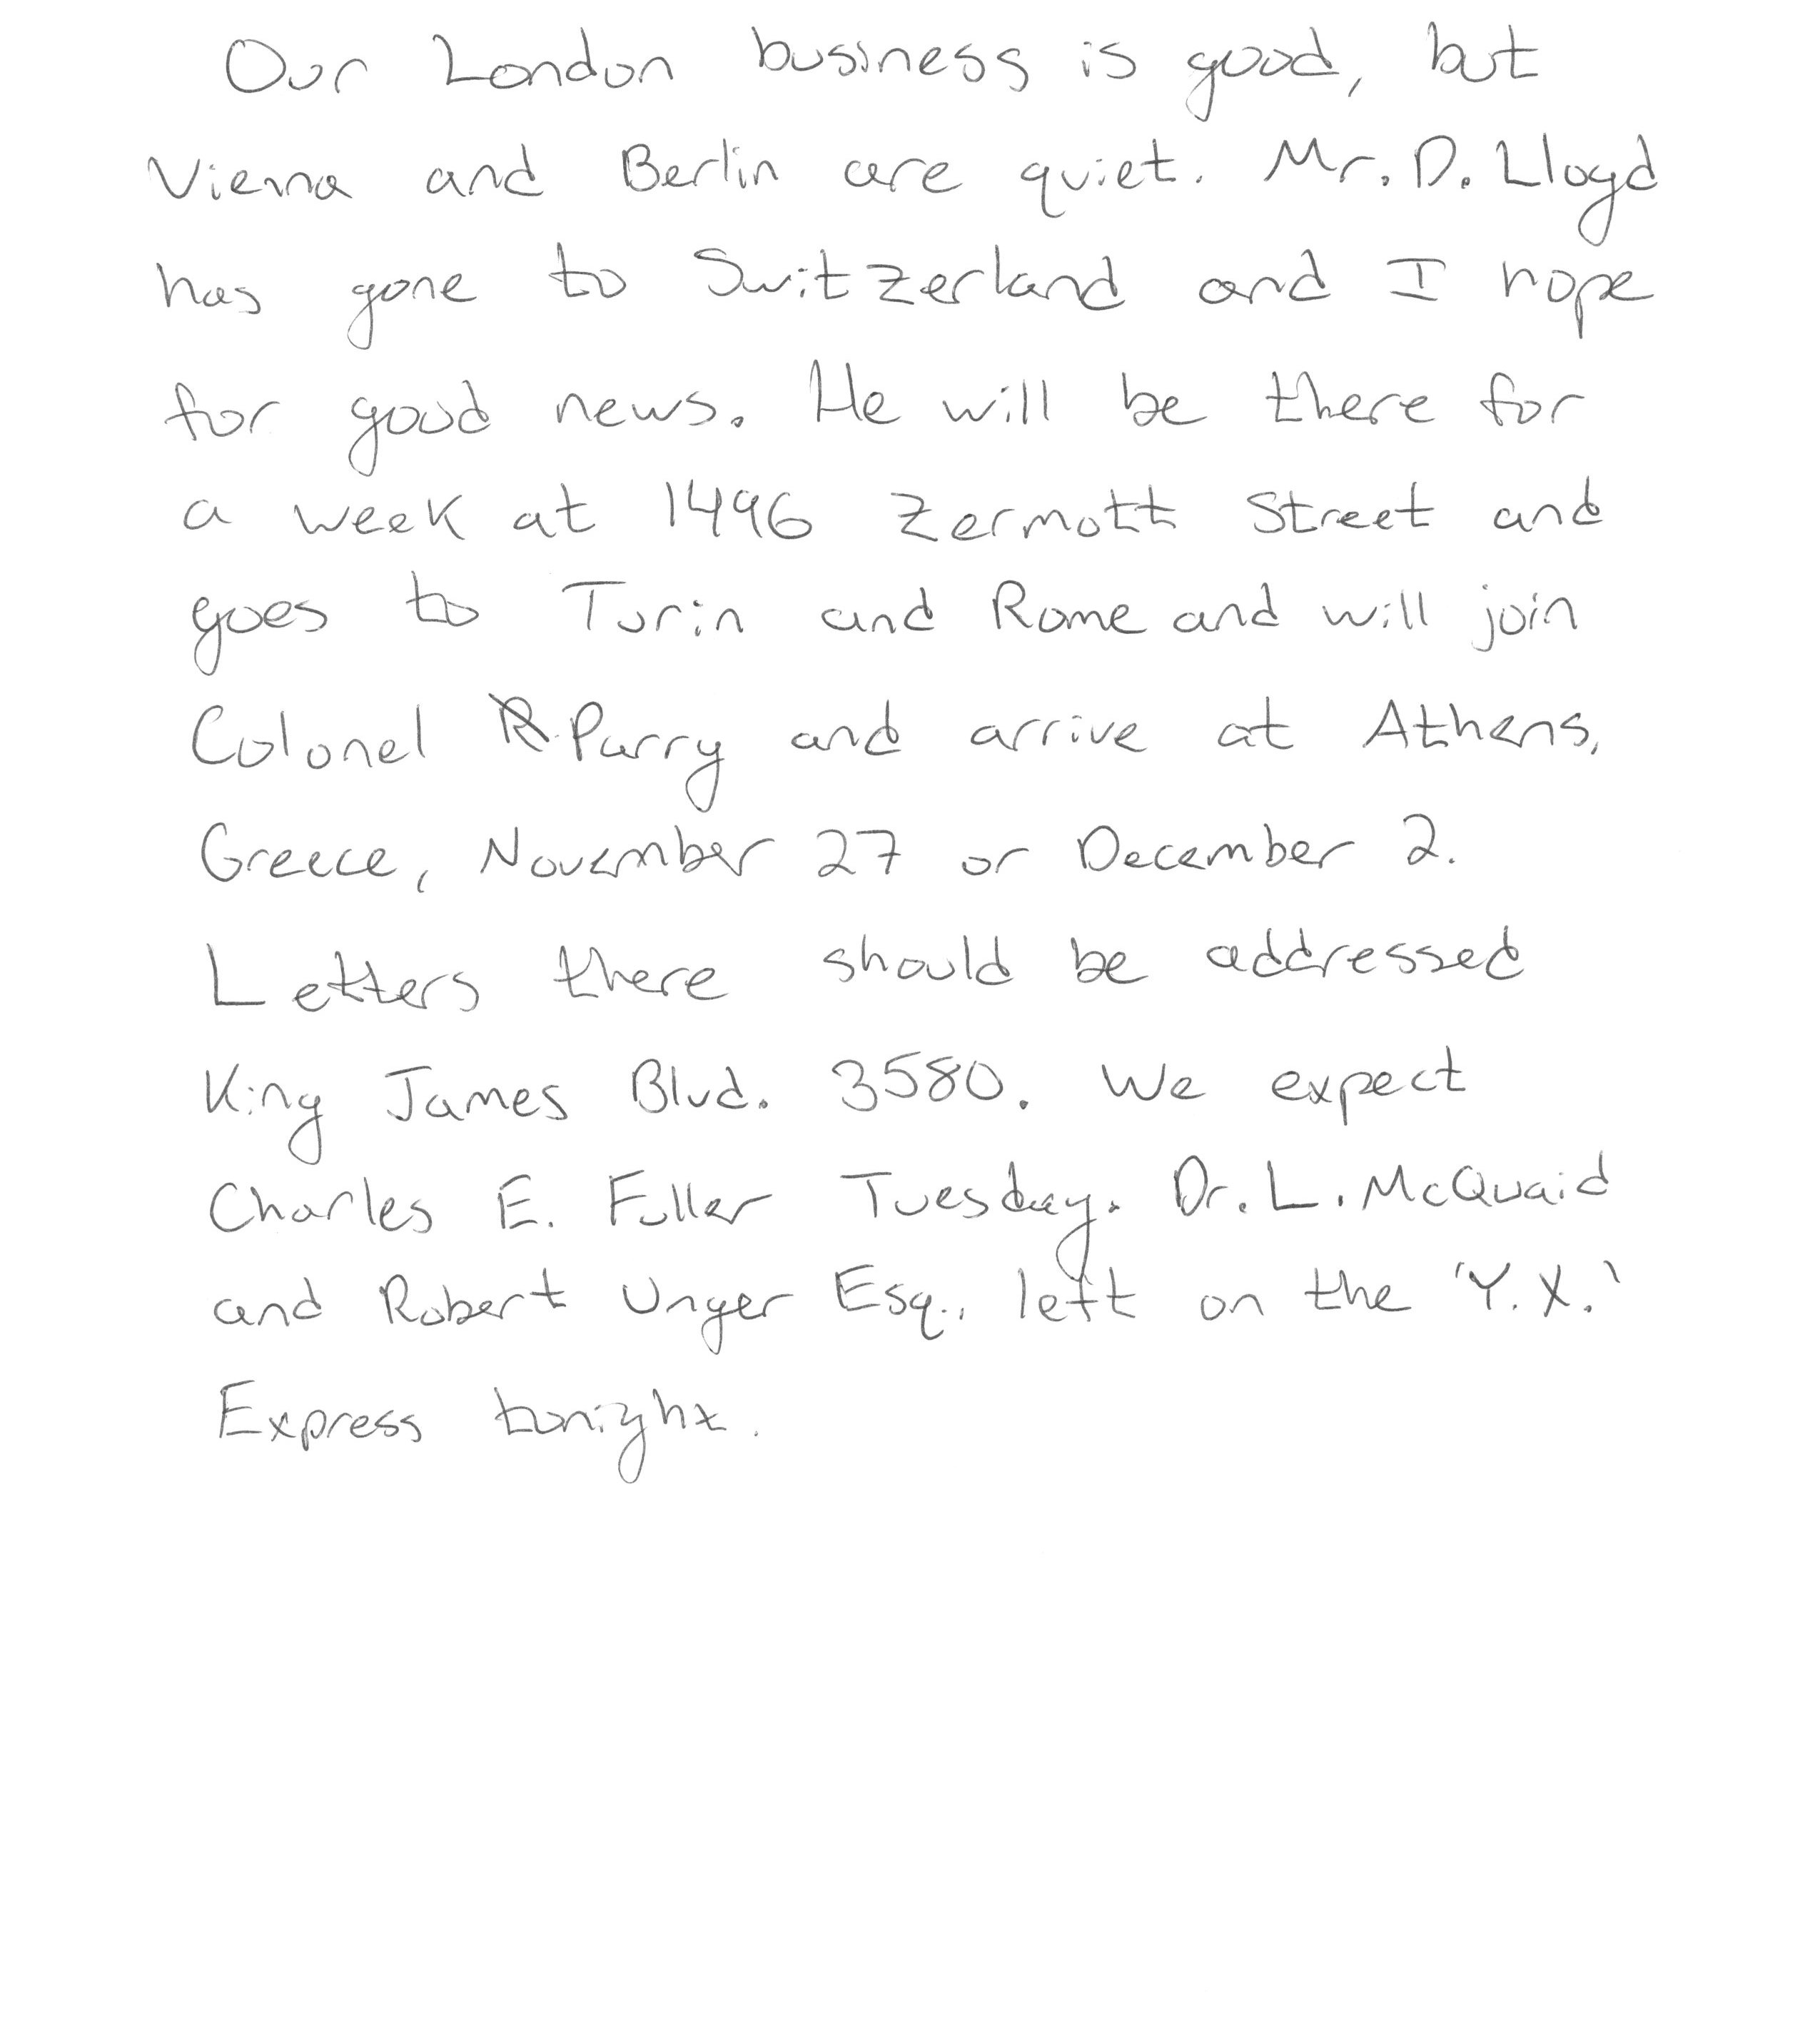 Our London business is good, but
Vienna and Berlin are quiet. Mr. D. Lloyd
has gone to Switzerland and I hope
for good news. He will be there for
a week at 1496 Zermott Street and
goes to Turin and Rome and will join
Colonel Parry and arrive at Athens,
Greece, November 27 or December 2.
Letters there should be addressed
King James Blvd. 3580. We expect
Charles E. Fuller Tuesday. Dr. L. McQuaid
and Robert Unger Esq., left on the 'Y.X.'
Express tonight.